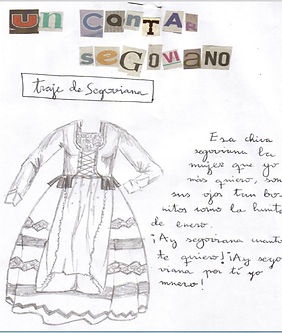 un cantar
segoviano
traje de Segoviana
Esa chica
segoviana la
mujer que yo
más quiero, son
sus ojos tan bo
nitos como la lunita
de enero.
¡Ay segoviana cuanto
te quiero! ¡Ay sego
viana por tí yo
muero!